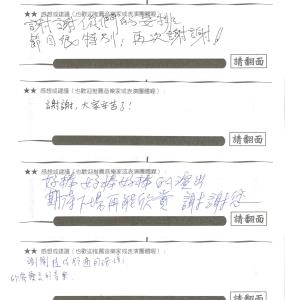 ★★ 感想或建議（也歡迎推薦音樂家或表演團體喔）：
謝謝你們的安排
節目很特別，再次謝謝！
請翻面
★★ 感想或建議（也歡迎推薦音樂家或表演團體喔）：
謝謝，大家辛苦了！
請翻面
★★ 感想或建議（也歡迎推薦音樂家或表演團體喔）：
好棒好棒好棒的演出
期待下次再能欣賞 謝謝您
請翻面
★★ 感想或建議（也歡迎推薦音樂家或表演團體喔）：
謝謝
請翻面